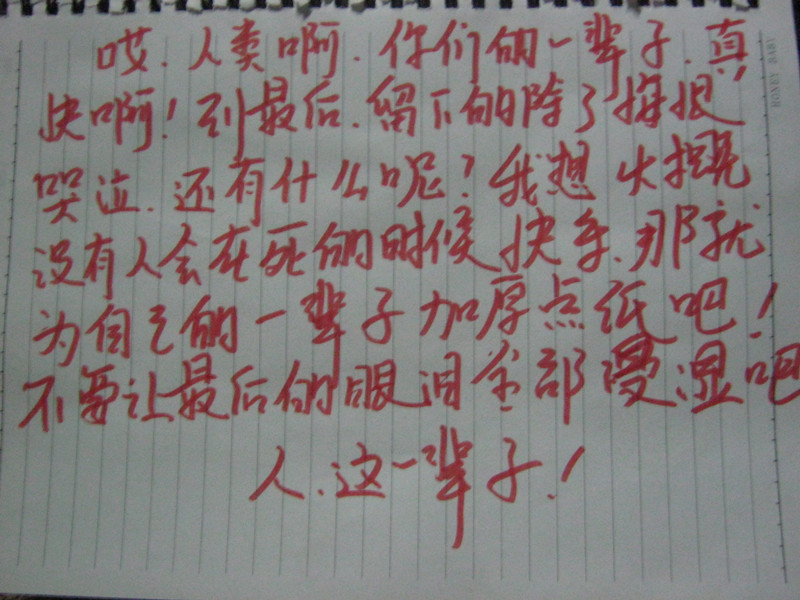 哎.人类啊.你们的一辈子.真
快啊!到最后.留下的除了悔恨
哭泣.还有什么呢?我想大概
没有人会在死的时候快乐.那就
为自己的一辈子加厚点纸吧!
不要让最后的眼泪全部浸湿吧
人.这一辈子!
HONEY BABY